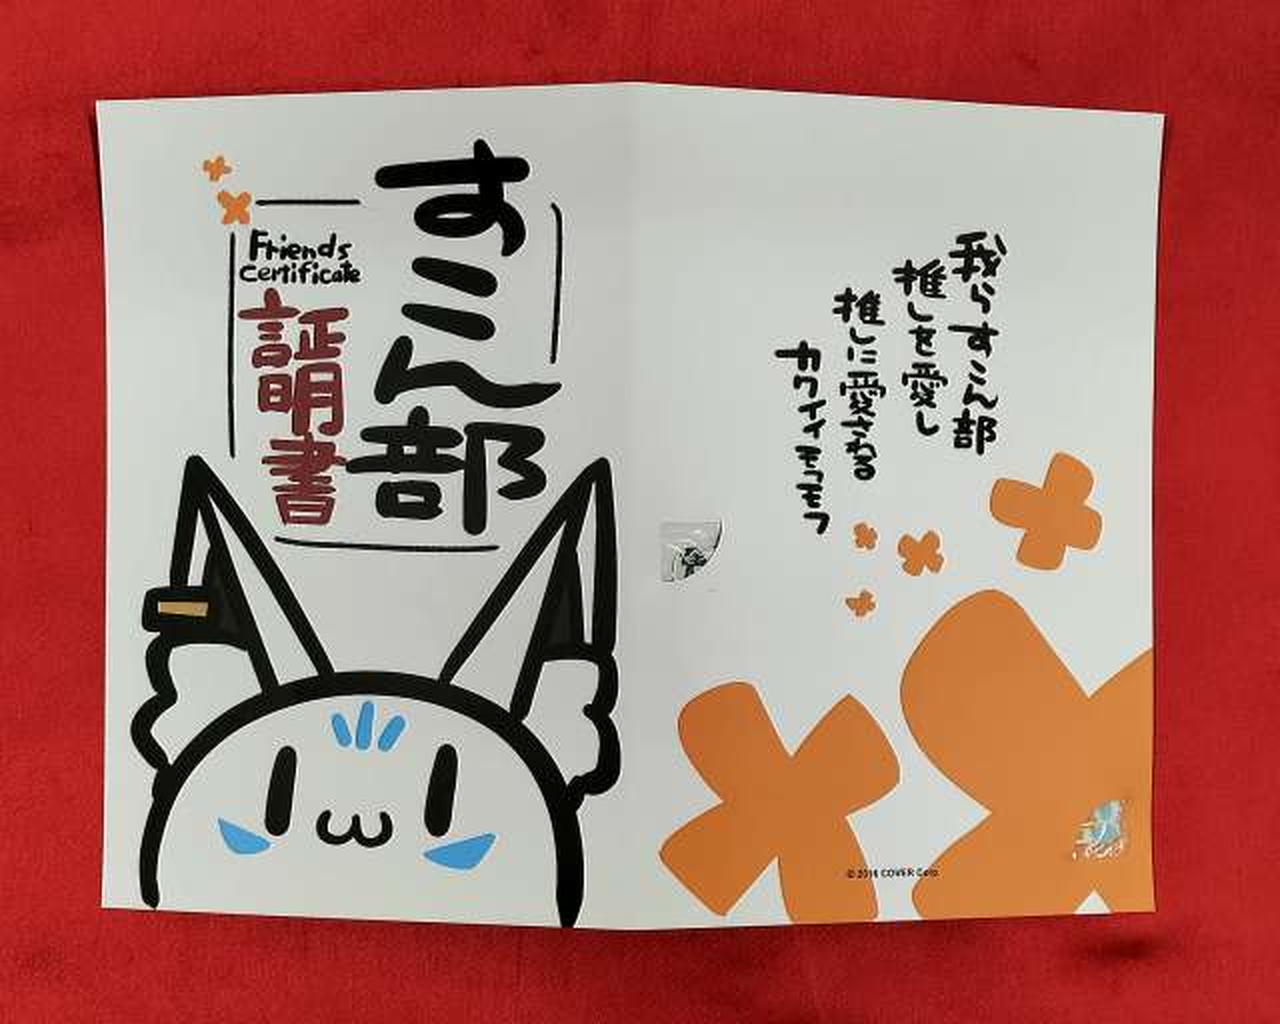 すこん部
Friends
certificate
証明書
我らすこん部
推しを愛し
推しに愛される
カワイイモフモフ
COVER Corp.